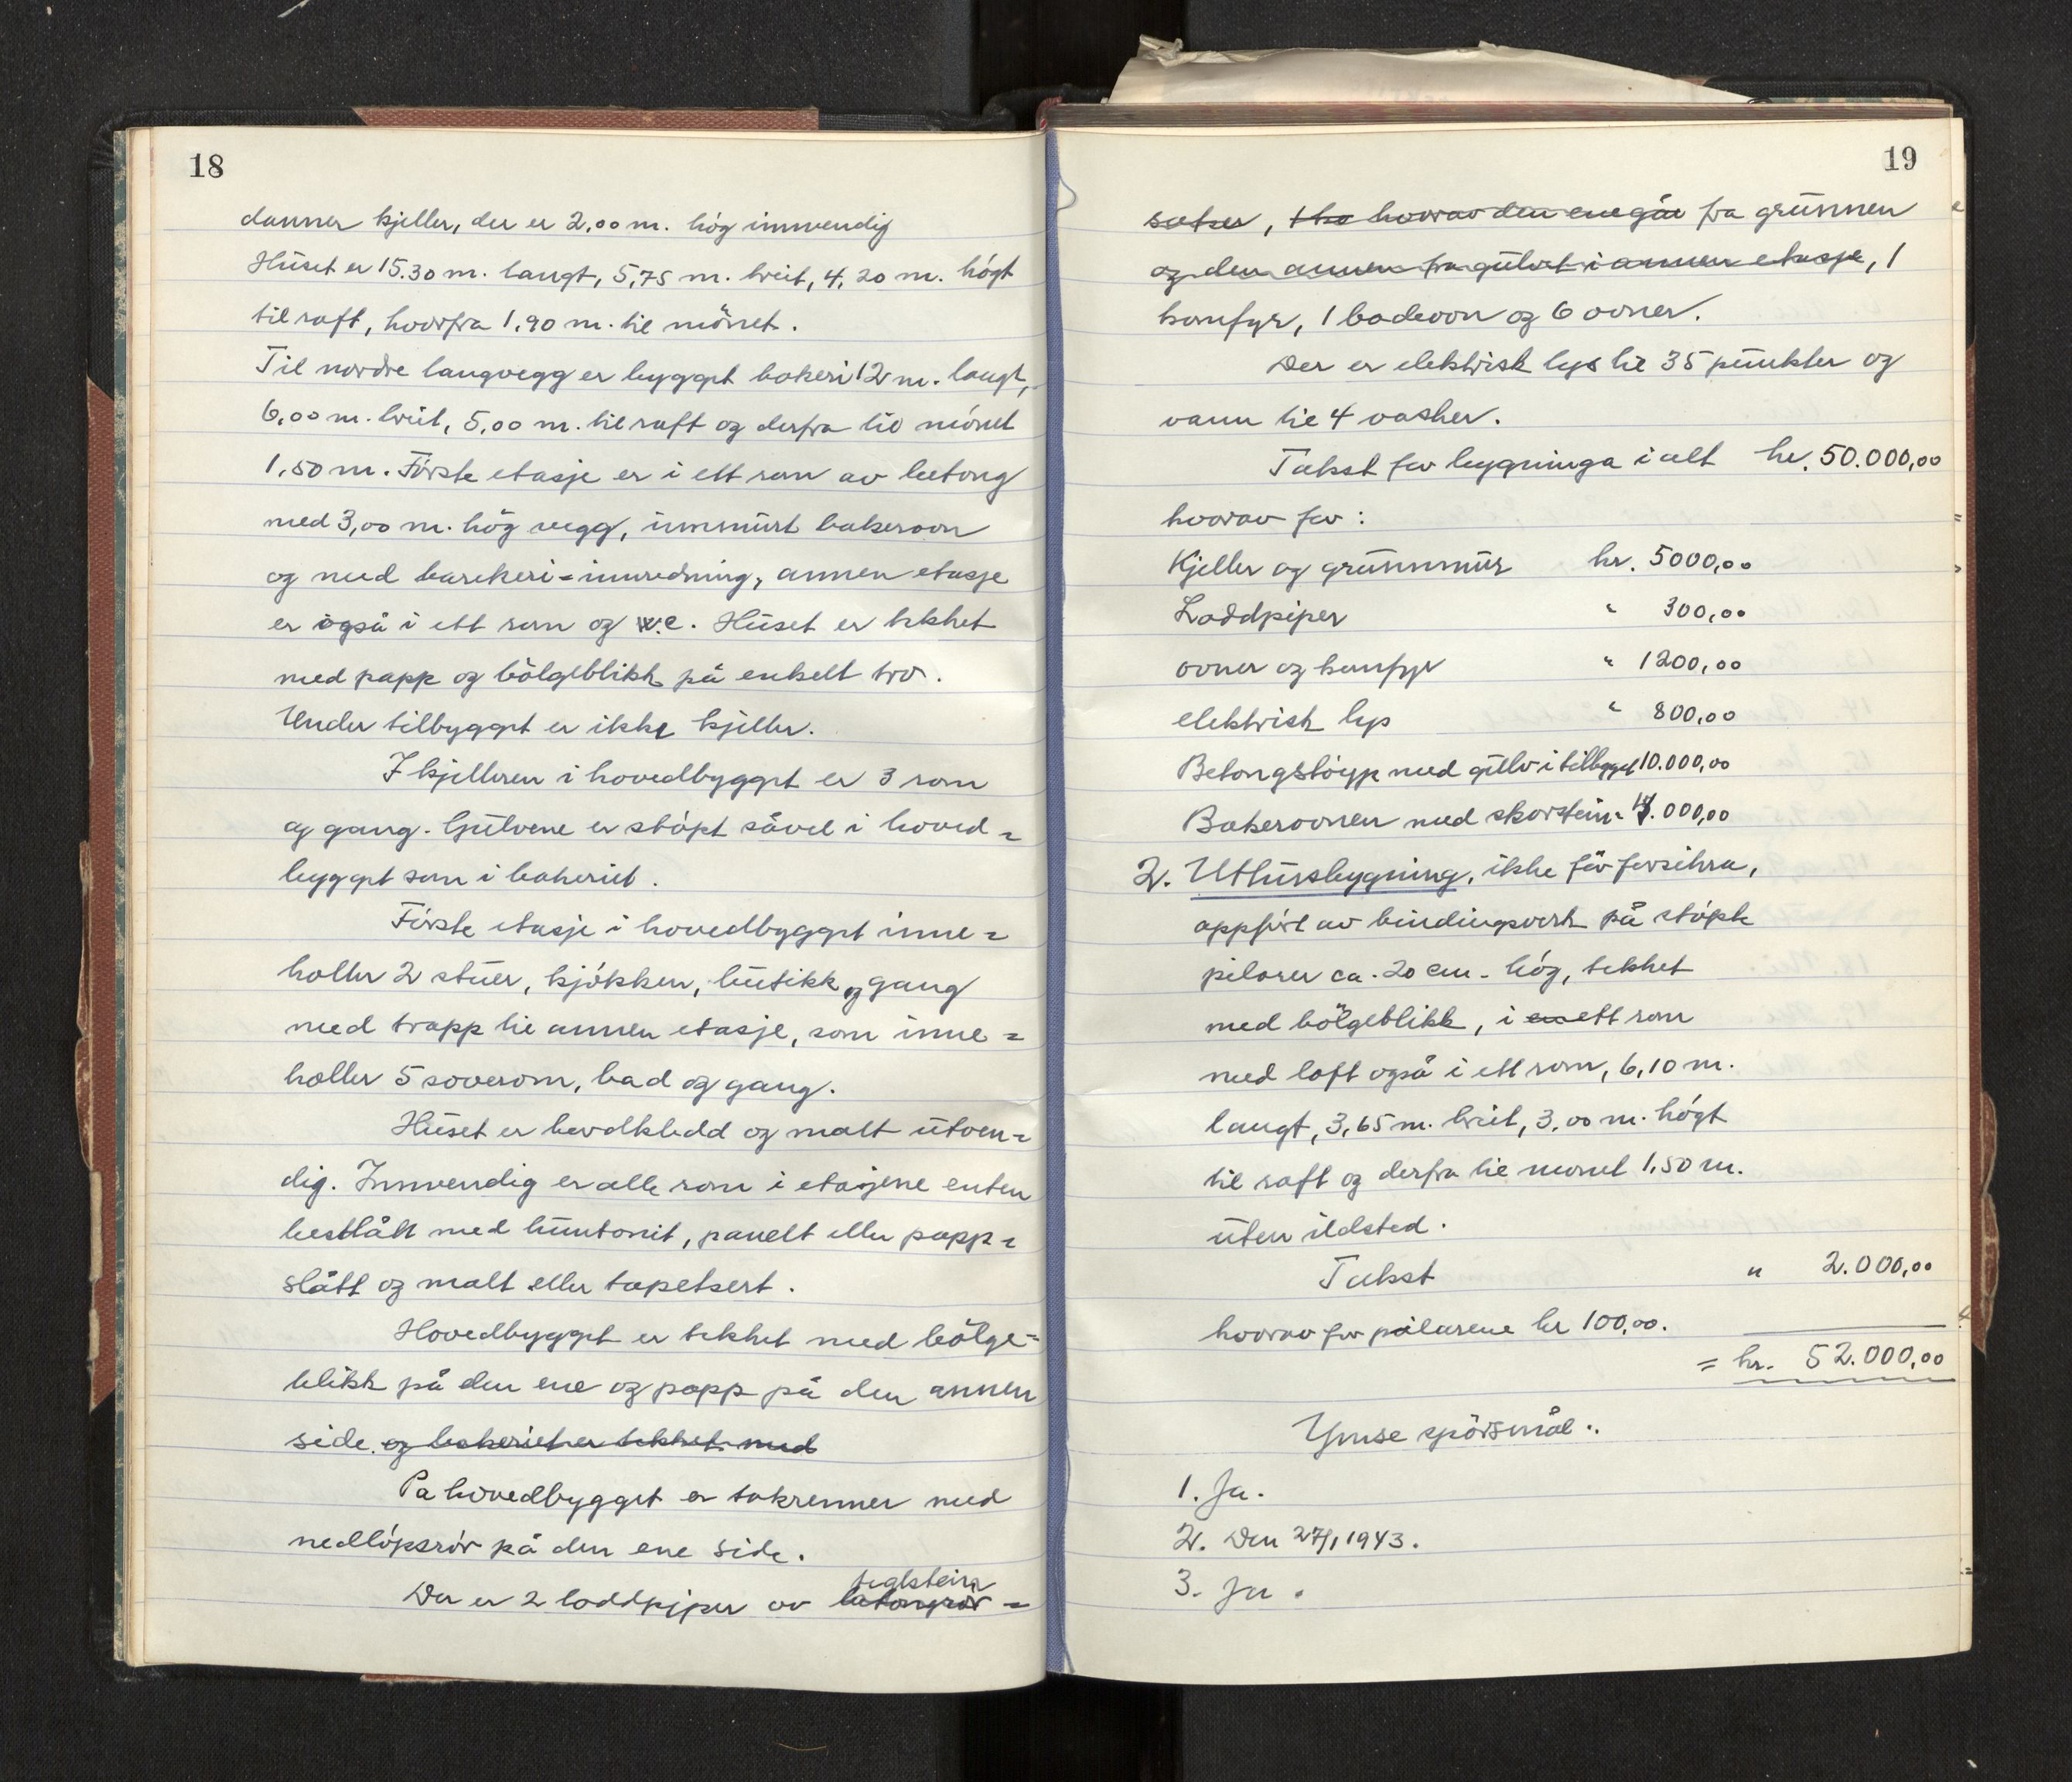 18
danner kjeller, der er 2,00 m. høg innvendig
Huset er 15.30 m. langt, 5,75 m. breit, 4,20 m. høgt
til raft, hvorfra 1,90 m. til mønet.
Til nordre langvegg er bygget bakeri 12 m. langt,
6,00 m. breit, 5,00 m. til raft og derfra til mønet
1,50 m. Første etasje er i ett rom av betong
med 3,00 m. høg vegg, innmurt bakerovn
og med barikeri=innredning, annen etasje
er også i ett rom og w.c. Huset er tekket
med papp og bølgeblikk på enkelt tro.
Under tilbygget er ikke kjeller.
I kjelleren i hovedbygget er 3 rom
og gang. Gulvene er støpt såvel i hoved=
bygget som i bakeriet.
Første etasje i hovedbygget inne=
holler 2 stuer, kjøkken, butikk og gang
med trapp til annen etasje, som inne=
holler 5 soverom, bad og gang.
Huset er bordkledd og malt utven=
dig. Innvendig er alle rom i etasjene enten
beslått med huntonit, panelt eller papp=
slått og malt eller tapetsert.
Hovedbygget er tekket med bølge=
blikk på den ene og papp på den annen
side. og bakeriet er tekket med
På hovedbygget er takrenner med
nedløpsrør på den ene side.
teglstein
Der er 2 loddpiper av betongrør =
19
søker, 1 ko hvorav den ene går fra grunnen
og den annen fra gulvet i annen etasje, 1
komfyr, 1 badeovn og 6 ovner.
Der er elektrisk lys til 35 punkter og
vann til 4 vasker.
Takst for bygninga i alt kr. 50.000,00
hvorav for:
Kjeller og grunnmur kr. 5000,00
Loddpiper " 300,00
ovner og komfyr " 1200,00
elektrisk lys " 800,00
Betongstøyp med gulv i tilbygget 10.000,00
Bakerovnen med skorstein " .000,00
2. Uthusbygning, ikke før forsikra,
oppført av bindingsverk på støpte
pilarer ca. 20 cm. høg, tekket
med bølgeblikk, i en ett rom
med loft også i ett rom, 6,10 m.
langt, 3,65 m. breit, 3,00 m. høgt
til raft og derfra til mønet 1,50 m.
uten ildsted.
Takst " 2.000,00
hvorav for pilarene kr 100,00.
= kr. 52.000,00
Ymse spørsmål:
1. Ja.
2. Den 27/1 1943.
3. Ja.